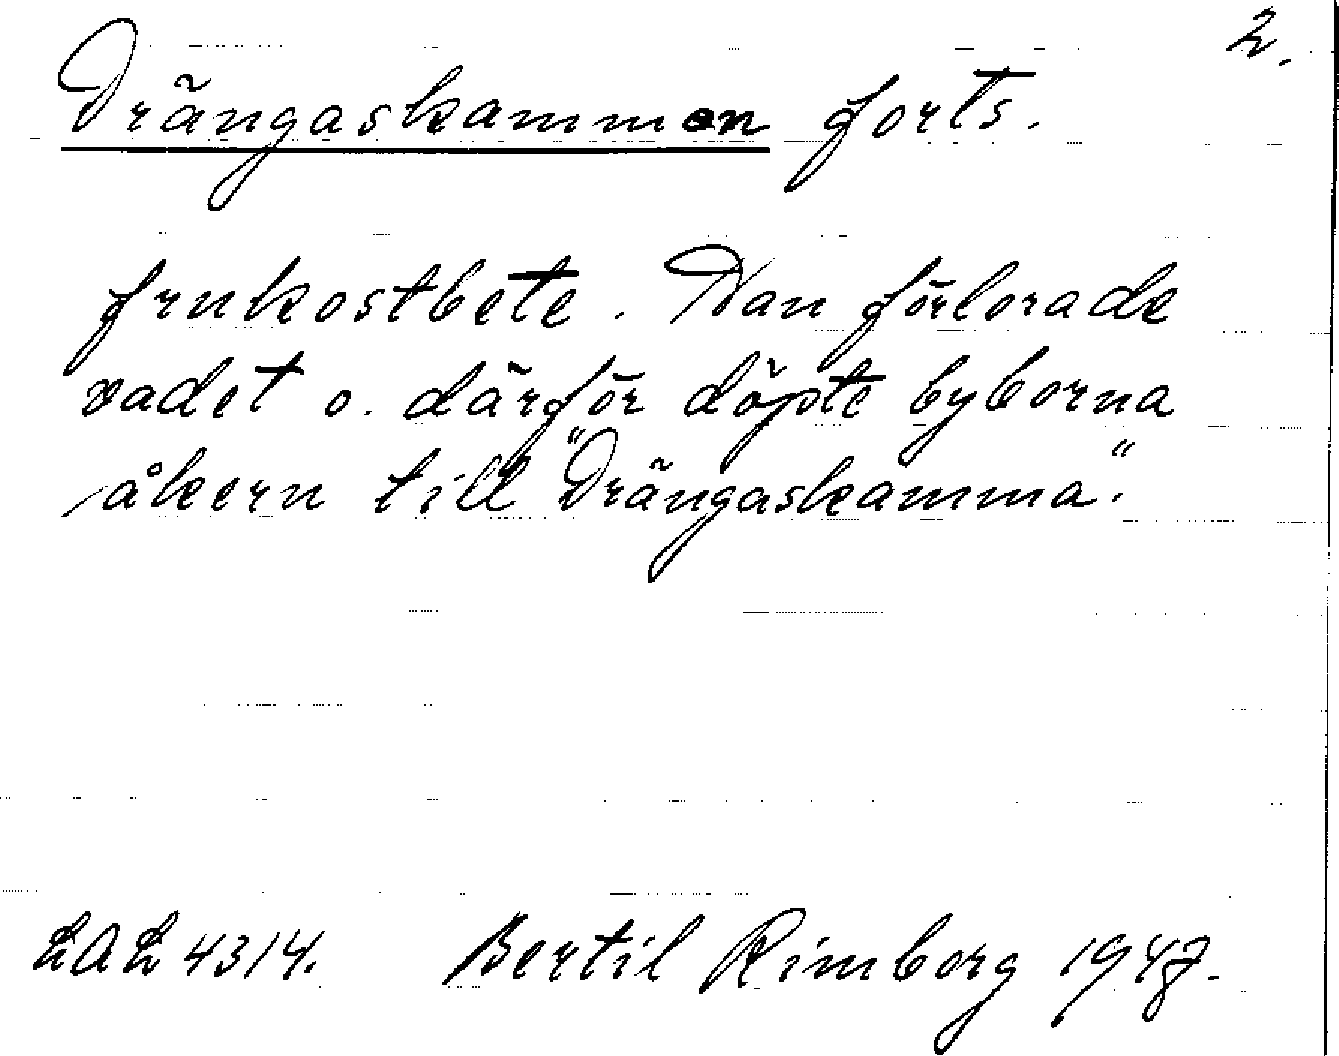 2.
Drängaskammen forts.
frukostbete. Han förlorade
vadet o. därför döpte byborna
åkern till "Drängaskamma".
LAL 4314. Bertil Rimborg 1947.